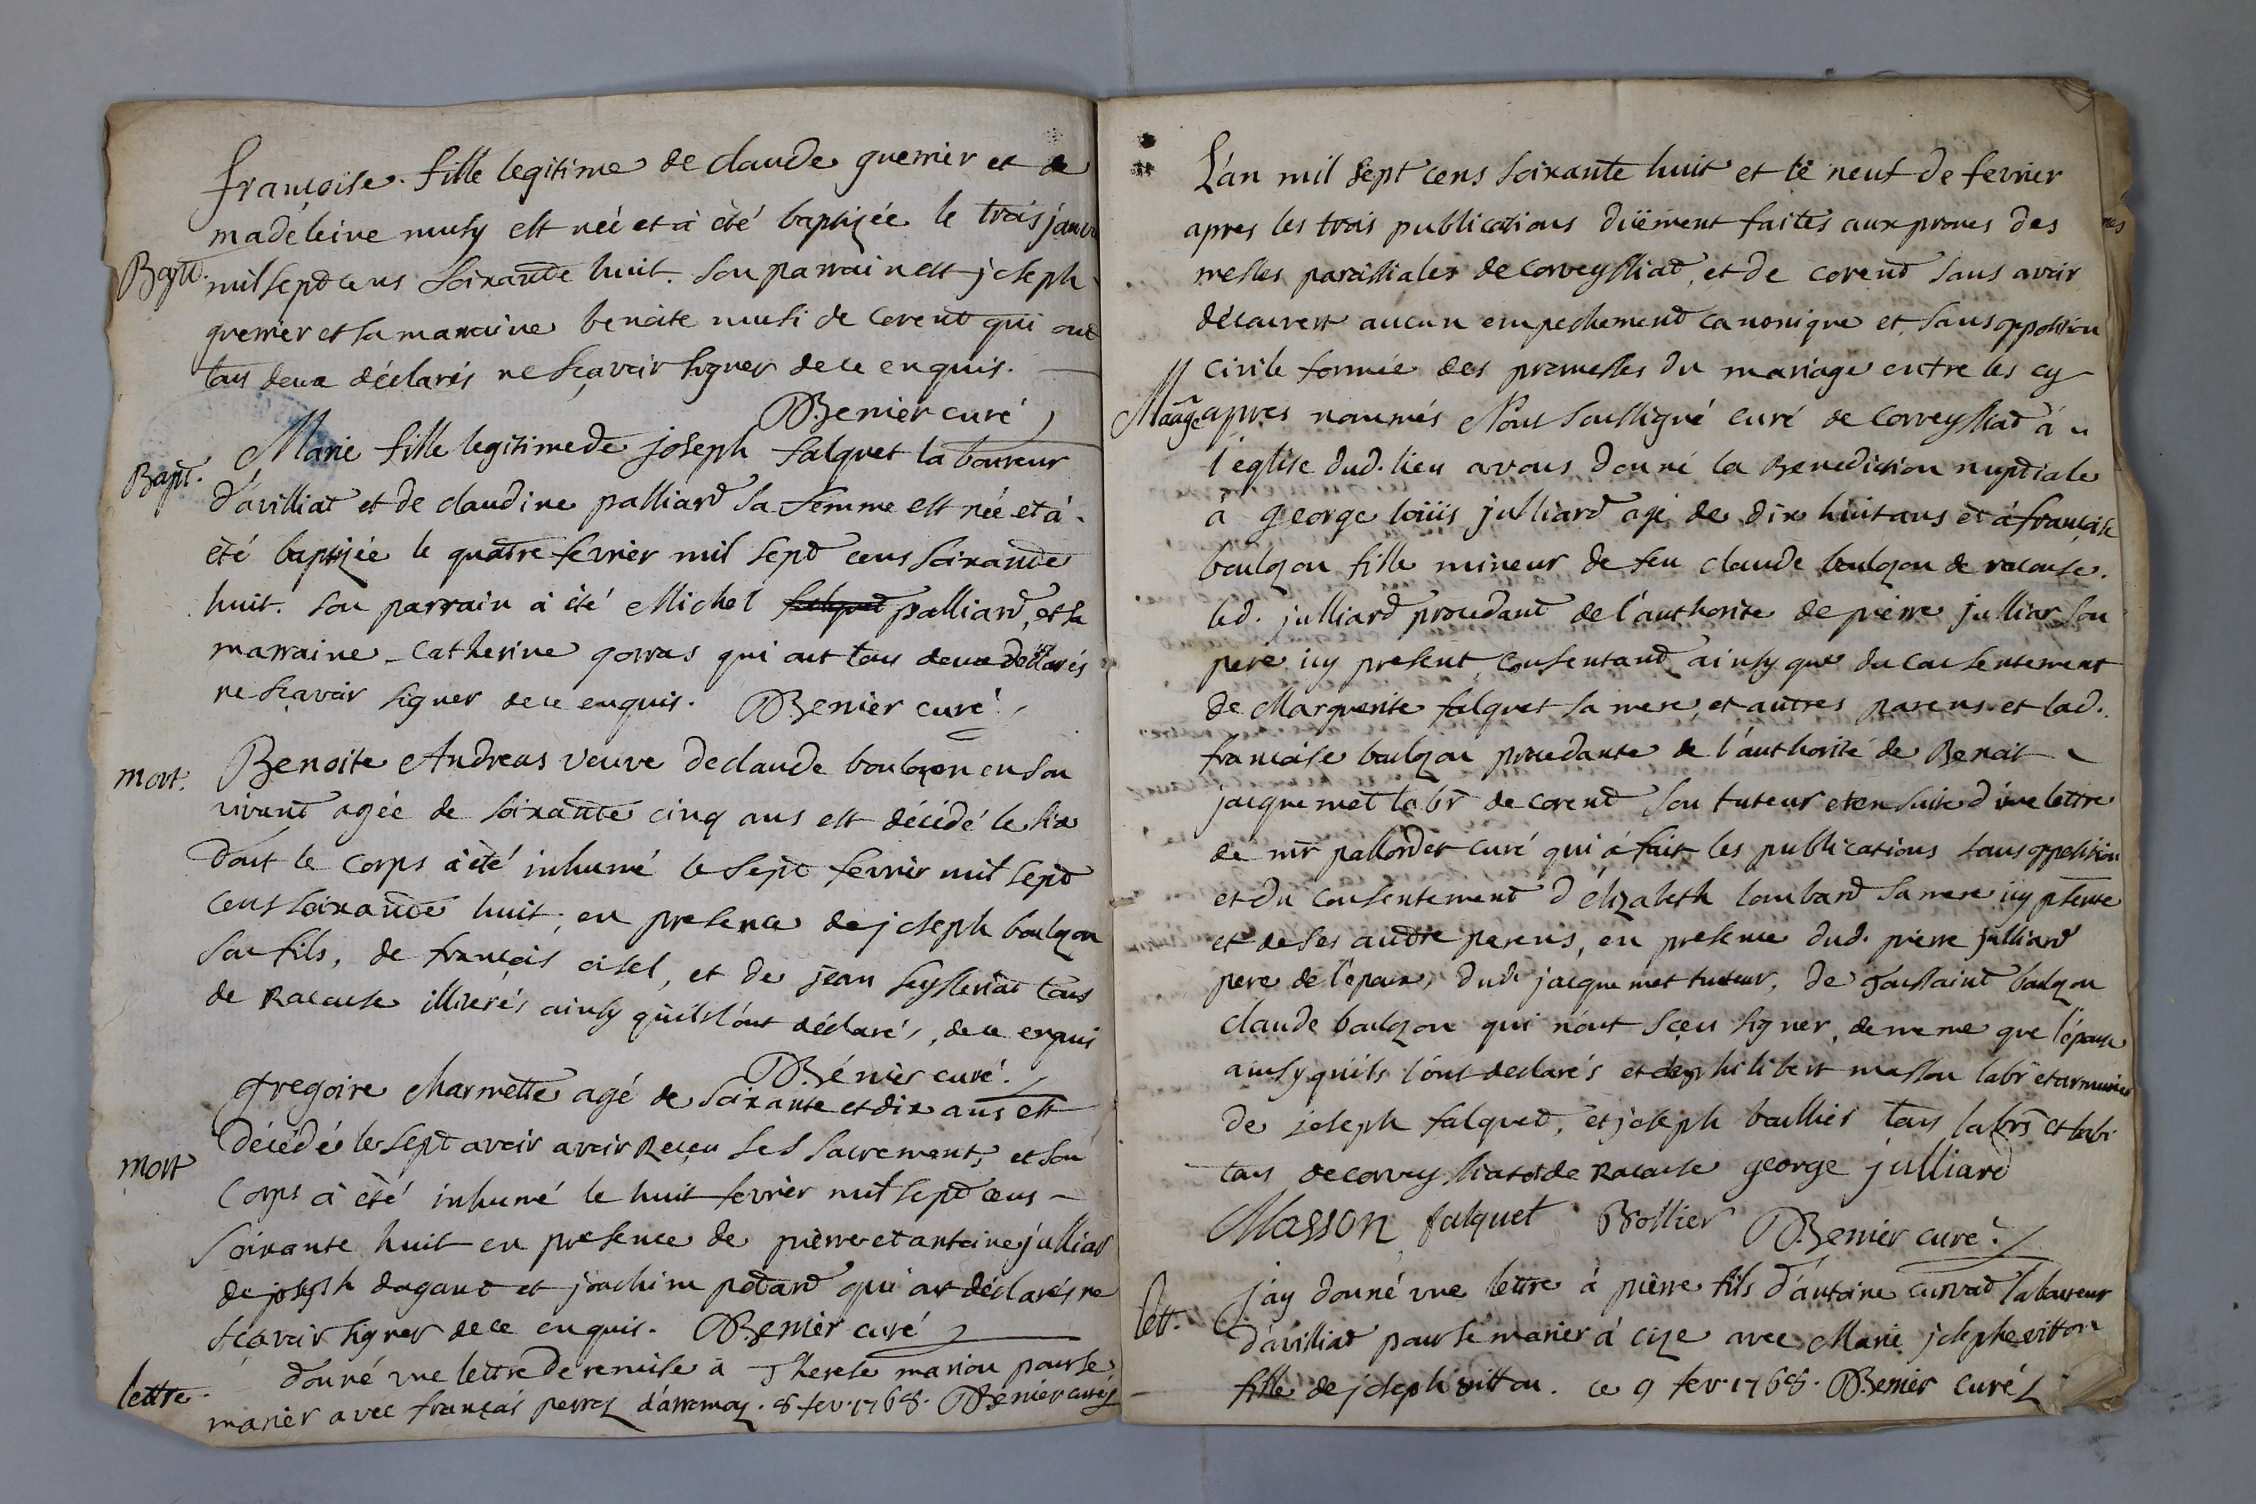 françoise fille legitime de claude guerrier et de
madeleine musy est néé et à été baptizée le trois janvi
Bapt.
mil sept cens soixante huit. son parrain est joseph
guerrier et sa marraine benoite musi de corent qui ont
tous deux déclarés ne sçavoir signer de ce enquis.
Benier curé
Marie fille legitime de joseph falquet laboureur
Bapt.
d'avilliat et de claudine palliard sa femme est née et à
été baptizée le quatre fevrier mil sept cens soixante
huit. son parrain à été Michel falquet palliard, et sa
marraine catherine gorras qui ont tous deux declarés
ne sçavoir signer de ce enquis. Benier curé
mort.
Benoite Andreas veuve de claude boulozon en son
vivant agée de soixante cinq ans est décédé le six
dont le corps à été inhumé le sept fevrier mil sept
cens soixante huit, en presence de joseph boulozon
son fils, de françois oisel, et de jean seysseriat tous
de Racouse illiterés ainsy quils l'ont déclarés, de ce enquis
Bénier curé.
gregoire charmette agé de soixante et dix ans est
décédé le sept avoir avoir Reçeu ses sacrement, et son
mort
corps à été inhumé le huit fevrier mil sept cens
soixante huit en presence de pierre et antoine julliard
de joseph dagaud et joachim potard qui ont déclarés ne
sçavoir signer de ce enquis. Benier curé
donné une lettre de remise à Therese marion pour se
lettre.
marier avec françois perroz d'arromoz. 8 fev. 1768. Benier curé
L'an mil sept cens soixante huit et le neuf de fevrier
apres les trois publications düement faites aux prones des
messes paroissiales de corveyssiat, et de corent sans avoir
découvert aucun empechement canonique et sans opposition
civile formée des promesses du mariage entre les cy
Maãge
apres nommés Nous soussigné curé de corveyssiat à
l'eglise dud. lieu avons donné la Benediction nuptiale
à george loüis julliard agé de dix huit ans et à françoise
boulozon fille mineur de feu claude boulozon de racouse.
led. julliard procedant de l'authorite de pierre julliar son
pere icy present consentant ainsy que du consentement
de Marguerite falquet sa mere, et autres parens et lad.
francoise boulozon procedante de l'authorité de Benoit
jacquemet labr de corent son tuteur et en suite d'une lettre
de mr pallordet curé qui à fait les publications sans opposition
et du consentement d'elizabeth lombard sa mere icy psente
et de ses autre parens, en presence dud. pierre julliard
pere de l'epoux, dud. jacquemet tuteur, de Toussaint boulozon
claude boulozon qui n'ont sçeu signer, de meme que l'épouse
ainsy quils l'ont declarés et de philibert masson labr et armurier
de joseph falquet, et joseph baullier tous labrs et habi
tans de corveyssiat et de Racouse george julliard
Masson falquet Bollier Benier curé.
lett.
j'ay donné une lettre à pierre fils d'antoine curvat laboureur
d'avilliat pour se marier à cize avec Marie josephe vitton
fille de joseph vitton. ce 9 fev. 1768. Benier curé